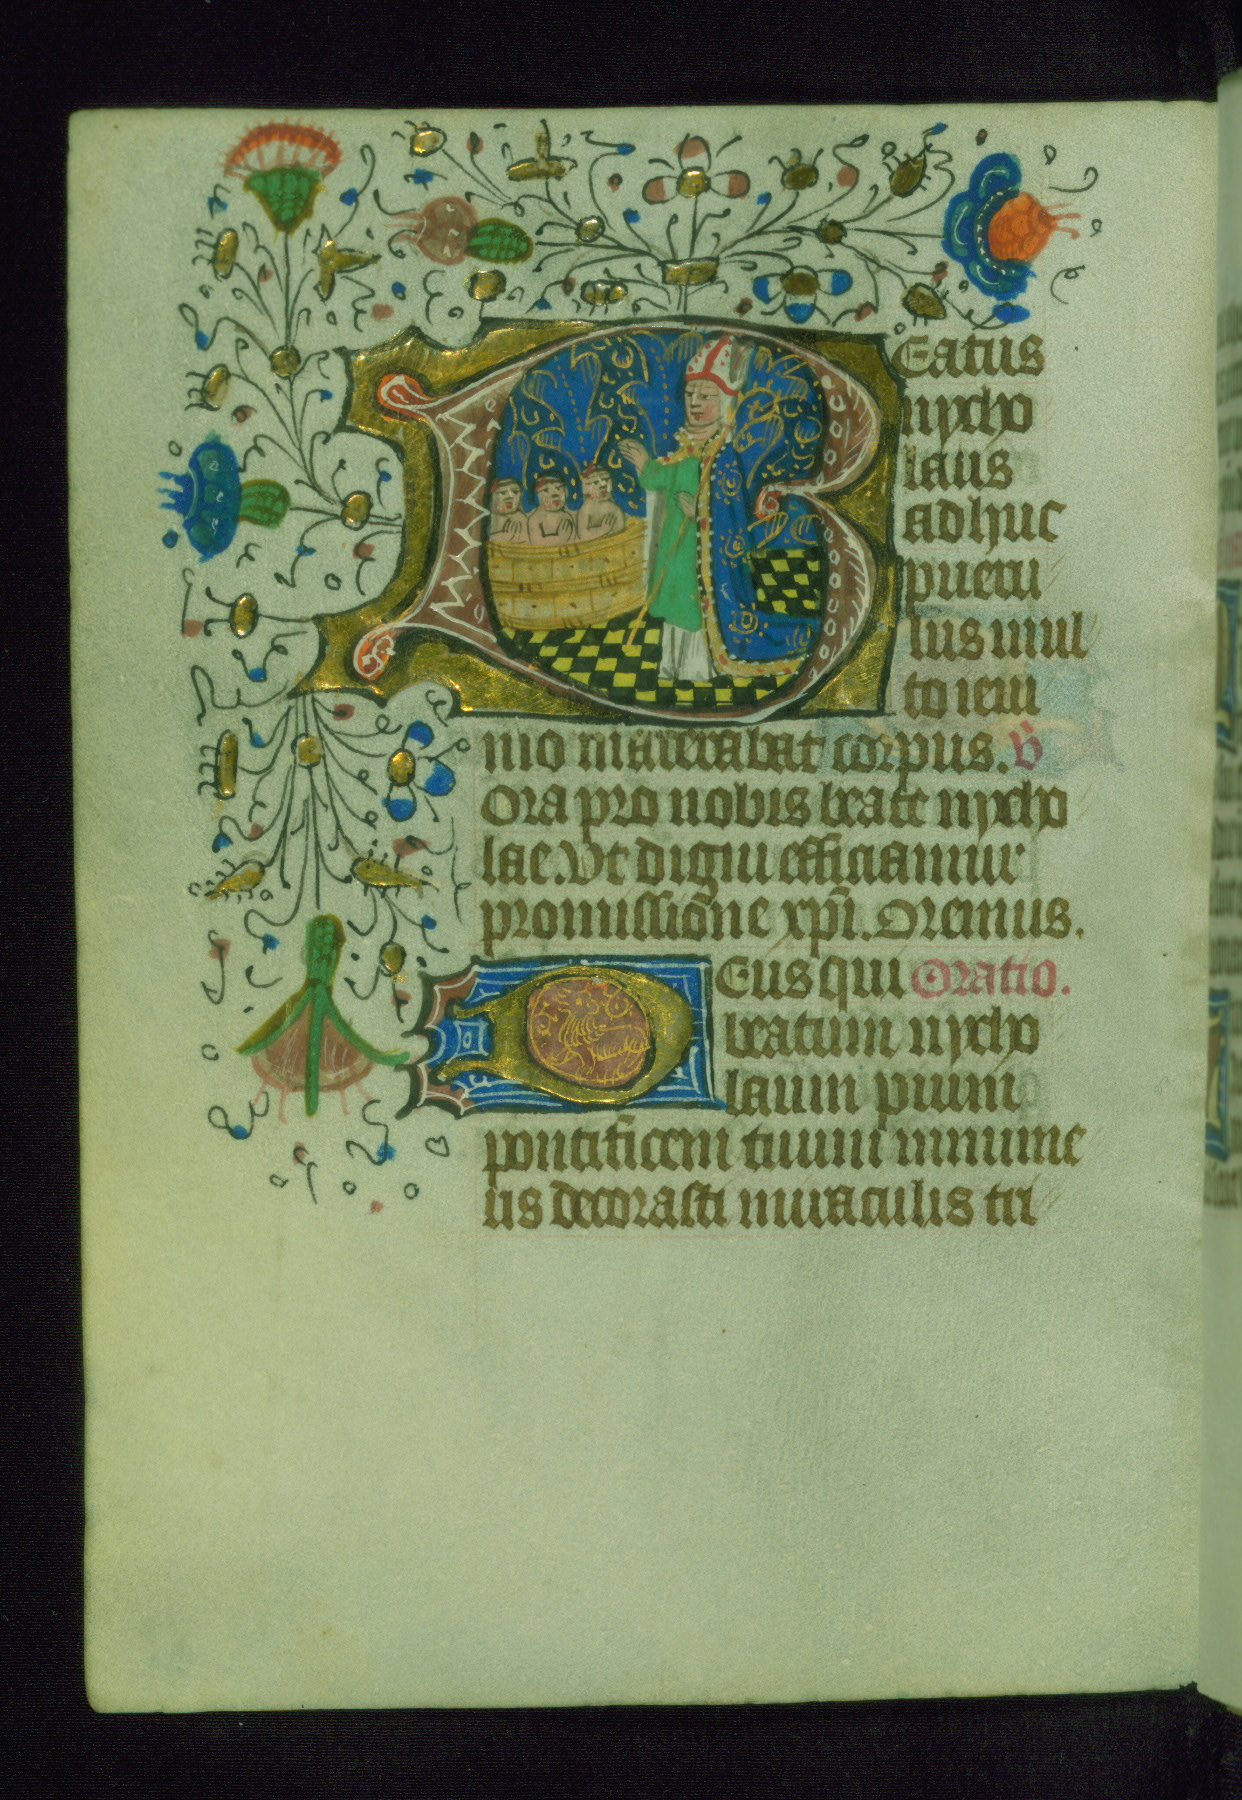 Beatus
nycho
laus
adhuc
pueru
lus mul
to ieiu
nio macerabat corpus. v̄
Ora pro nobis beate nycho
lae. Vt digni efficiamur
promissione xp̄i. Oremus.
Deus qui Oratio.
beatum nycho
laum pium
pontificem tuum innume
ris decorasti miraculis tri